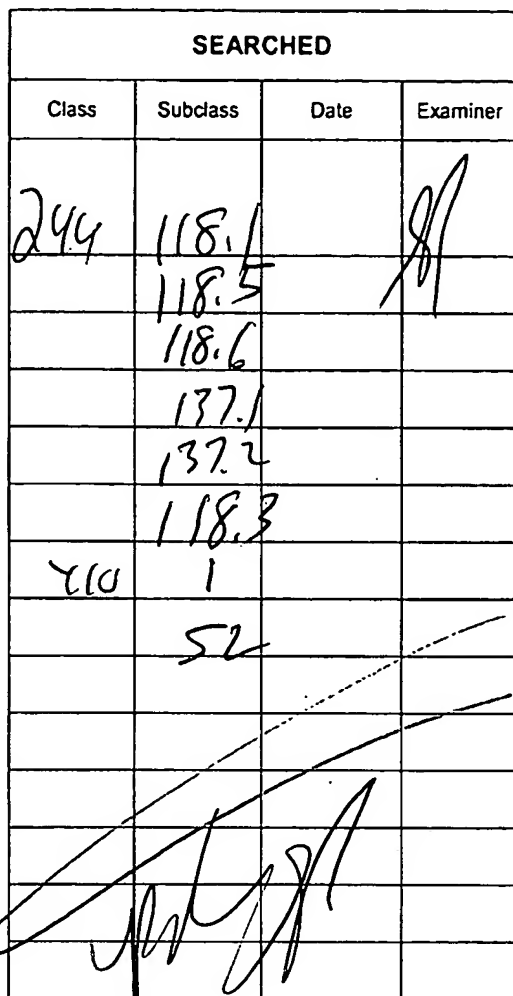 SEARCHED
Class Subclass Date Examiner
244 118.1
118.5
118.6
137.1
137.2
118.3
410 1
52